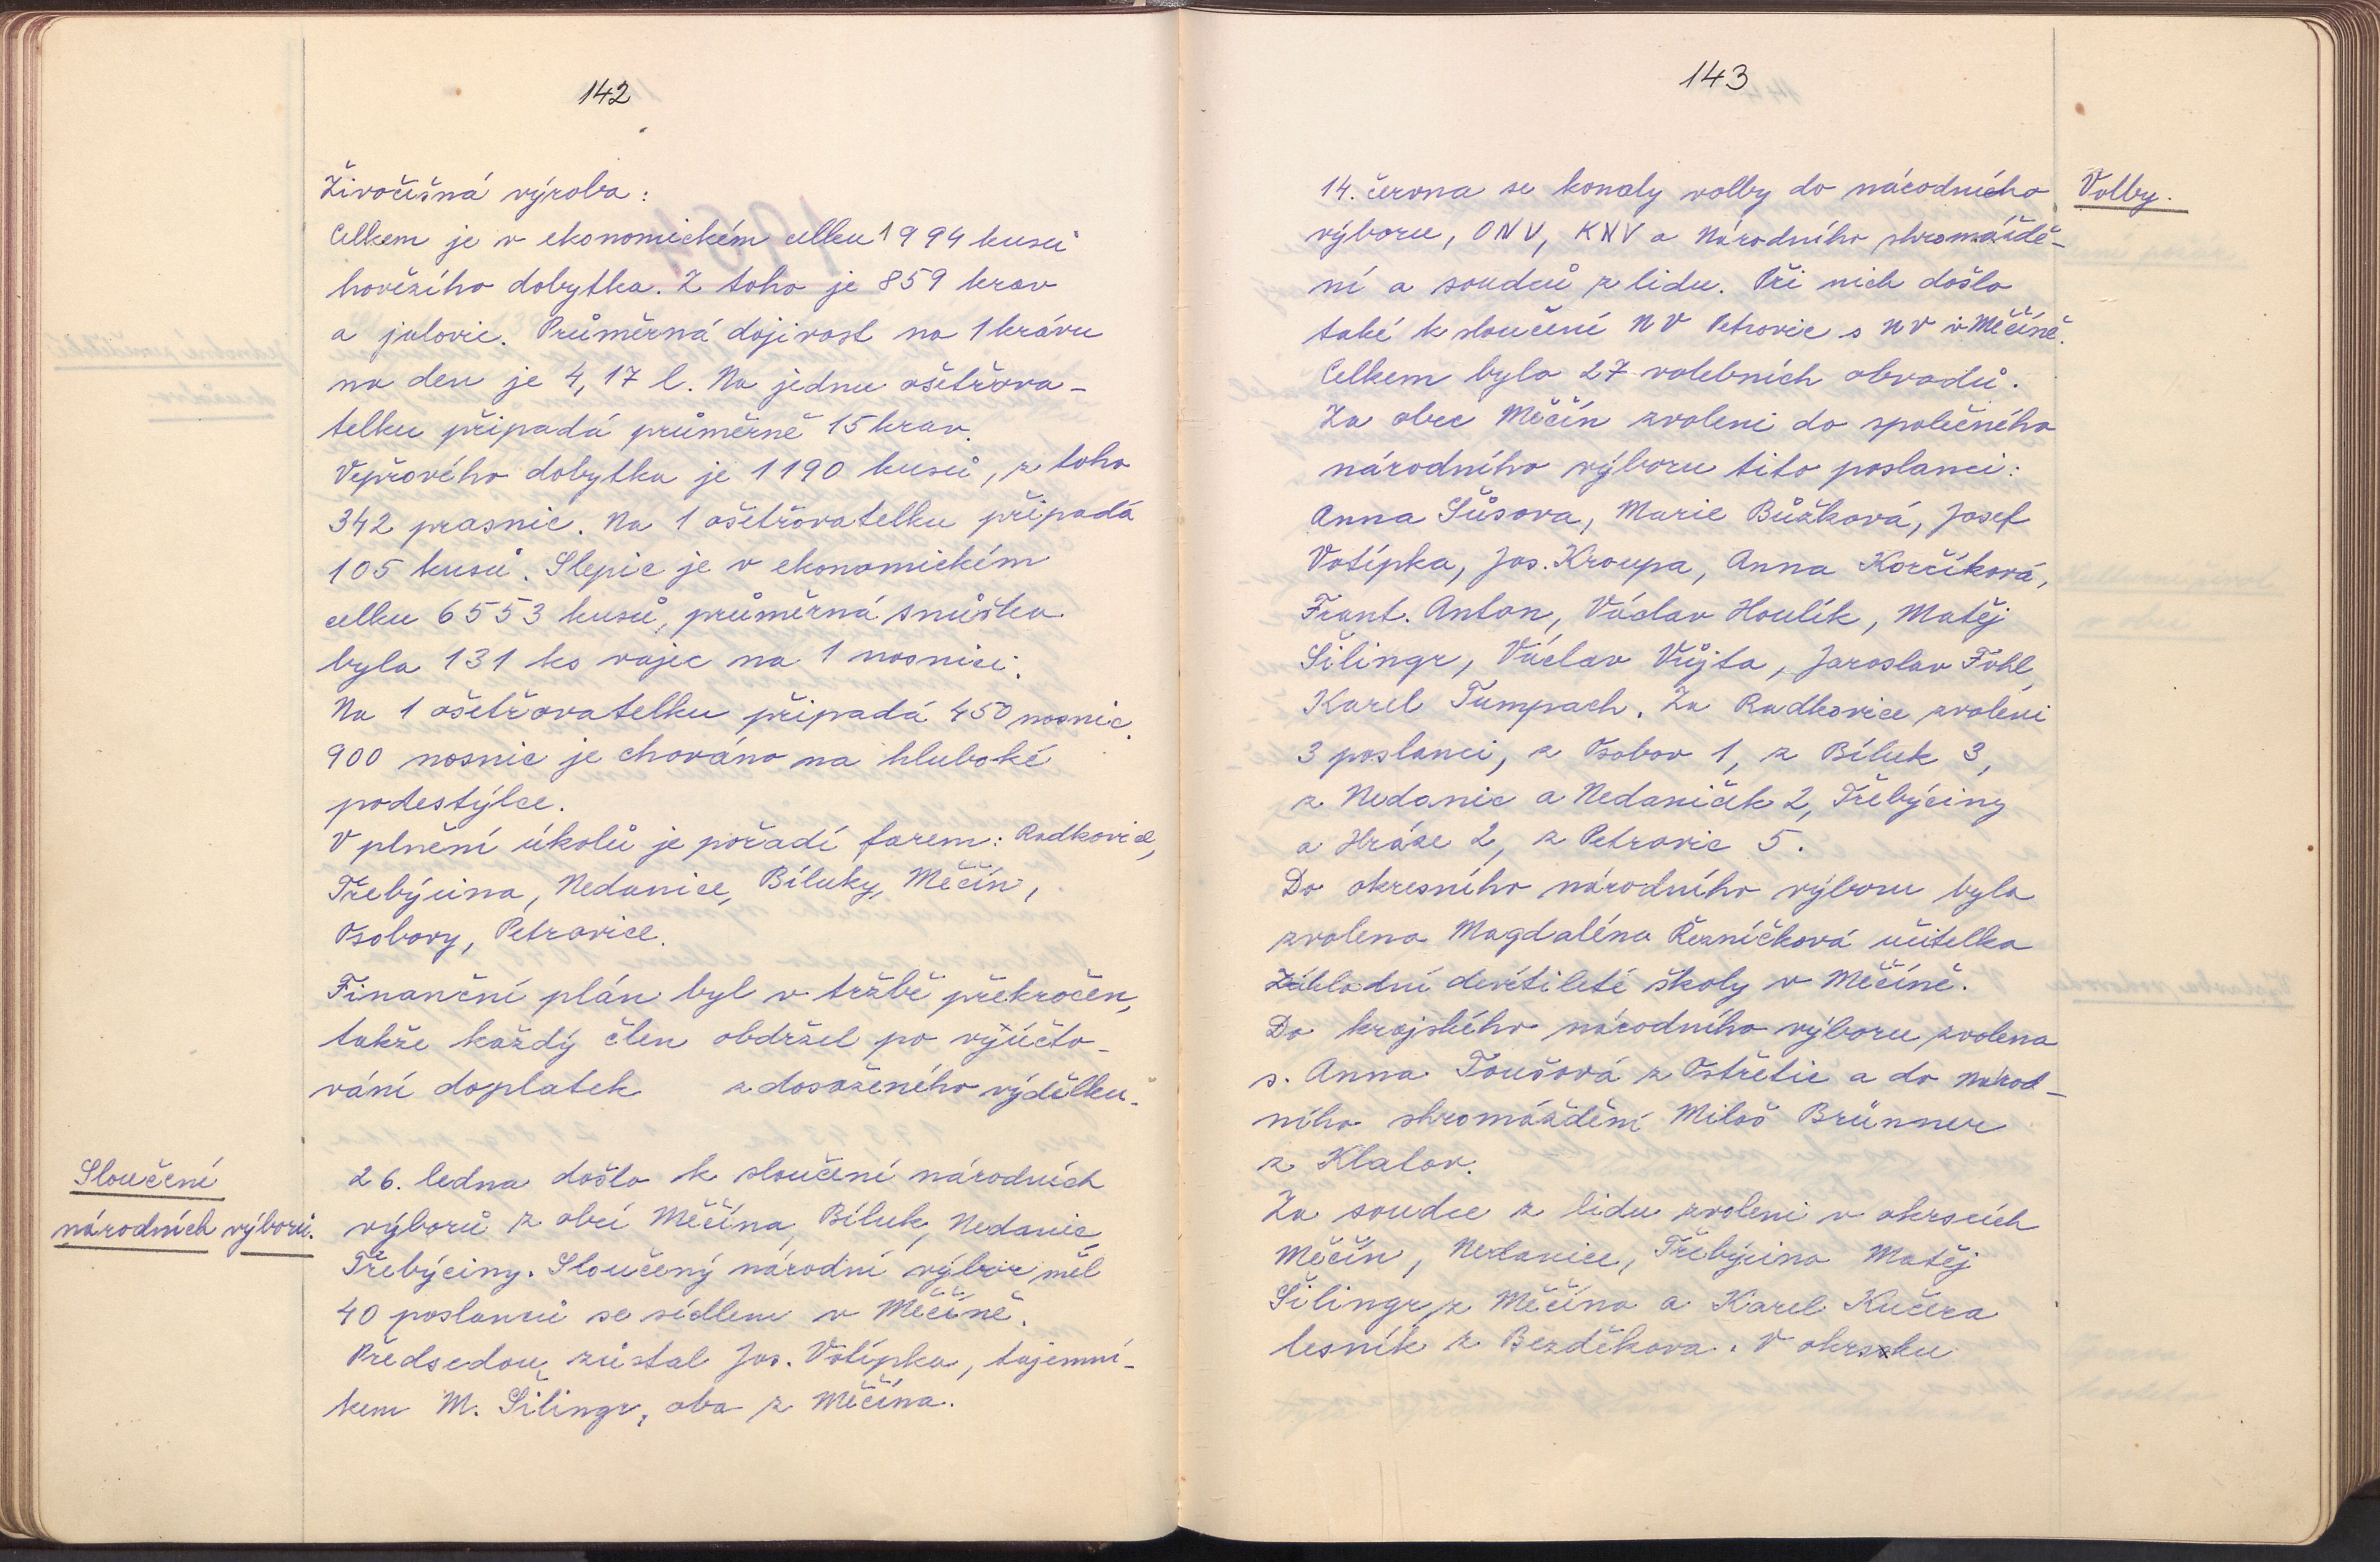 142
Živočišná výroba:
Celkem je v ekonomickém celku 1994 kusů
hovězího dobytka. Z toho je 859 krav
a jalovic. Průměrná dojivost na 1 krávu
na den je 4,17 l. Na jednu ošetřova-
telku připadá průměrně 15 krav.
Vepřového dobytka je 1190 kusů, z toho
342 prasnic. Na 1 ošetřovatelku připadá
105 kusů. Slepic je v ekonomickém
celku 6553 kusů, průměrná snůška
byla 131 ks vajec na 1 nosnici.
Na 1 ošetřovatelku připadá 450 nosnic.
900 nosnic je chováno na hluboké
podestýlce.
V plnění úkolů je pořadí farem: Radkovice,
Třebýcina, Nedanice, Bíluky, Měčín,
Osobovy, Petrovice.
Finanční plán byl v tržbě překročen,
takže každý člen obdržel po vyúčto-
vání doplatek z dosaženého výdělku.
Sloučení
národních výborů.
26. ledna došlo k sloučení národních
výborů z obcí Měčína, Bíluk, Nedanic,
Třebýciny. Sloučený národní výbor měl
40 poslanců se sídlem v Měčíně.
Předsedou zůstal Jos. Votípka, tajemní-
kem M. Šilingr, oba z Měčína.
143
Volby.
14. června se konaly volby do národního
výboru, ONV, KNV a Národního shromáždě-
ní a soudců z lidu. Při nich došlo
také k sloučení NV Petrovic s NV v Měčíně.
Celkem bylo 27 volebních obvodů.
Za obec Měčín zvoleni do společného
národního výboru tito poslanci:
Anna Sůsova, Marie Bůžková, Josef
Votípka, Jos. Kroupa, Anna Korčíková,
Frant. Anton, Václav Houlík, Matěj
Šilingr, Václav Vůjta, Jaroslav Fohl,
Karel Tumpach. Za Radkovice zvoleni
3 poslanci, z Osobov 1, z Bíluk 3,
z Nedanic a Nedaniček 2, Třebýciny
a Hráze 2, z Petrovic 5.
Do okresního národního výboru byla
zvolena Magdaléna Řezníčková učitelka
Základní devítileté školy v Měčíně.
Do krajského národního výboru zvolena
s. Anna Toušová z Ostřetic a do Národ-
ního shromáždění Miloš Brünner
z Klatov.
Za soudce z lidu zvoleni v okrscích
Měčín, Nedanice, Třebýcina Matěj
Šilingr z Měčína a Karel Kučera
lesník z Bezděkova. V okrsku